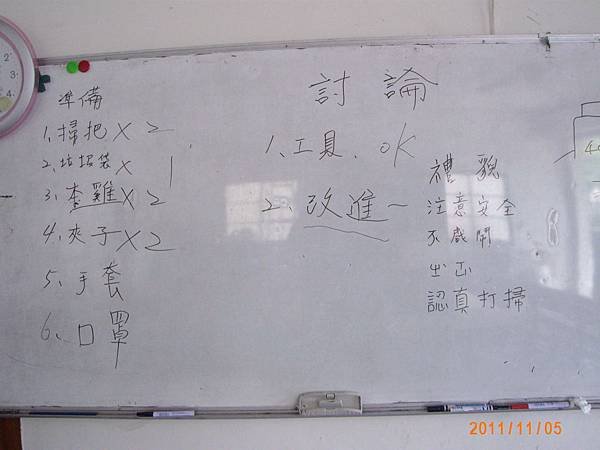 準備
1、掃把 X 2
2、垃圾袋 X 1
3、畚雞 X 2
4、夾子 X 2
5、手套
6、口罩
討論
1、工具、OK
2、改進~
禮貌
注意安全
不戲鬧
認真打掃
2011/11/05